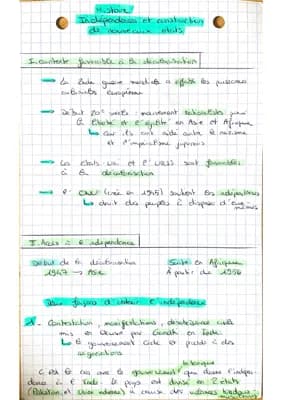 Histoire
Indépendances et construction
de nouveaux états
I. contexte favorable à la décolonisation
→ La 2nde guerre mondiale a affaibli les puissances
coloniales européennes
→ Début 20e siècle mouvement nationalistes pour
la liberté et l'égalité en Asie et Afrique
↳ car ils ont aidé contre le nazisme
et l'impérialisme japonais
→ Les états-uni et l'URSS sont favorables
à la décolonisation
→ l'ONU (crée en 1945) soutient les indépendances
↳ droit des peuples à disposer d'eux-
mêmes
II. Accès à l'indépendance
Début de la décolonisation
1947 → Asie
Suite en Afrique
à partir de 1956
Deux façons d'obtenir l'indépendance
1 - Contestation, manifestations, désobéissance civile
mis en œuvre par Gandhi en Inde.
↳ le gouvernement cède et procède à des
négociations
C'est le cas avec le gouvernement britannique qui donne l'indépen-
dance à l'Inde. Le pays est divisé en 2 états
(Pakistan et Union indienne) à cause des